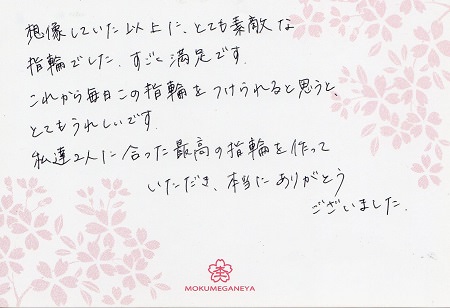 想像していた以上に、とても素敵な
指輪でした。すごく満足です。
これから毎日この指輪をつけられると思うと、
とてもうれしいです。
私達2人に合った最高の指輪を作って
いただき、本当にありがとう
ございました。
杢
MOKUMEGANEYA